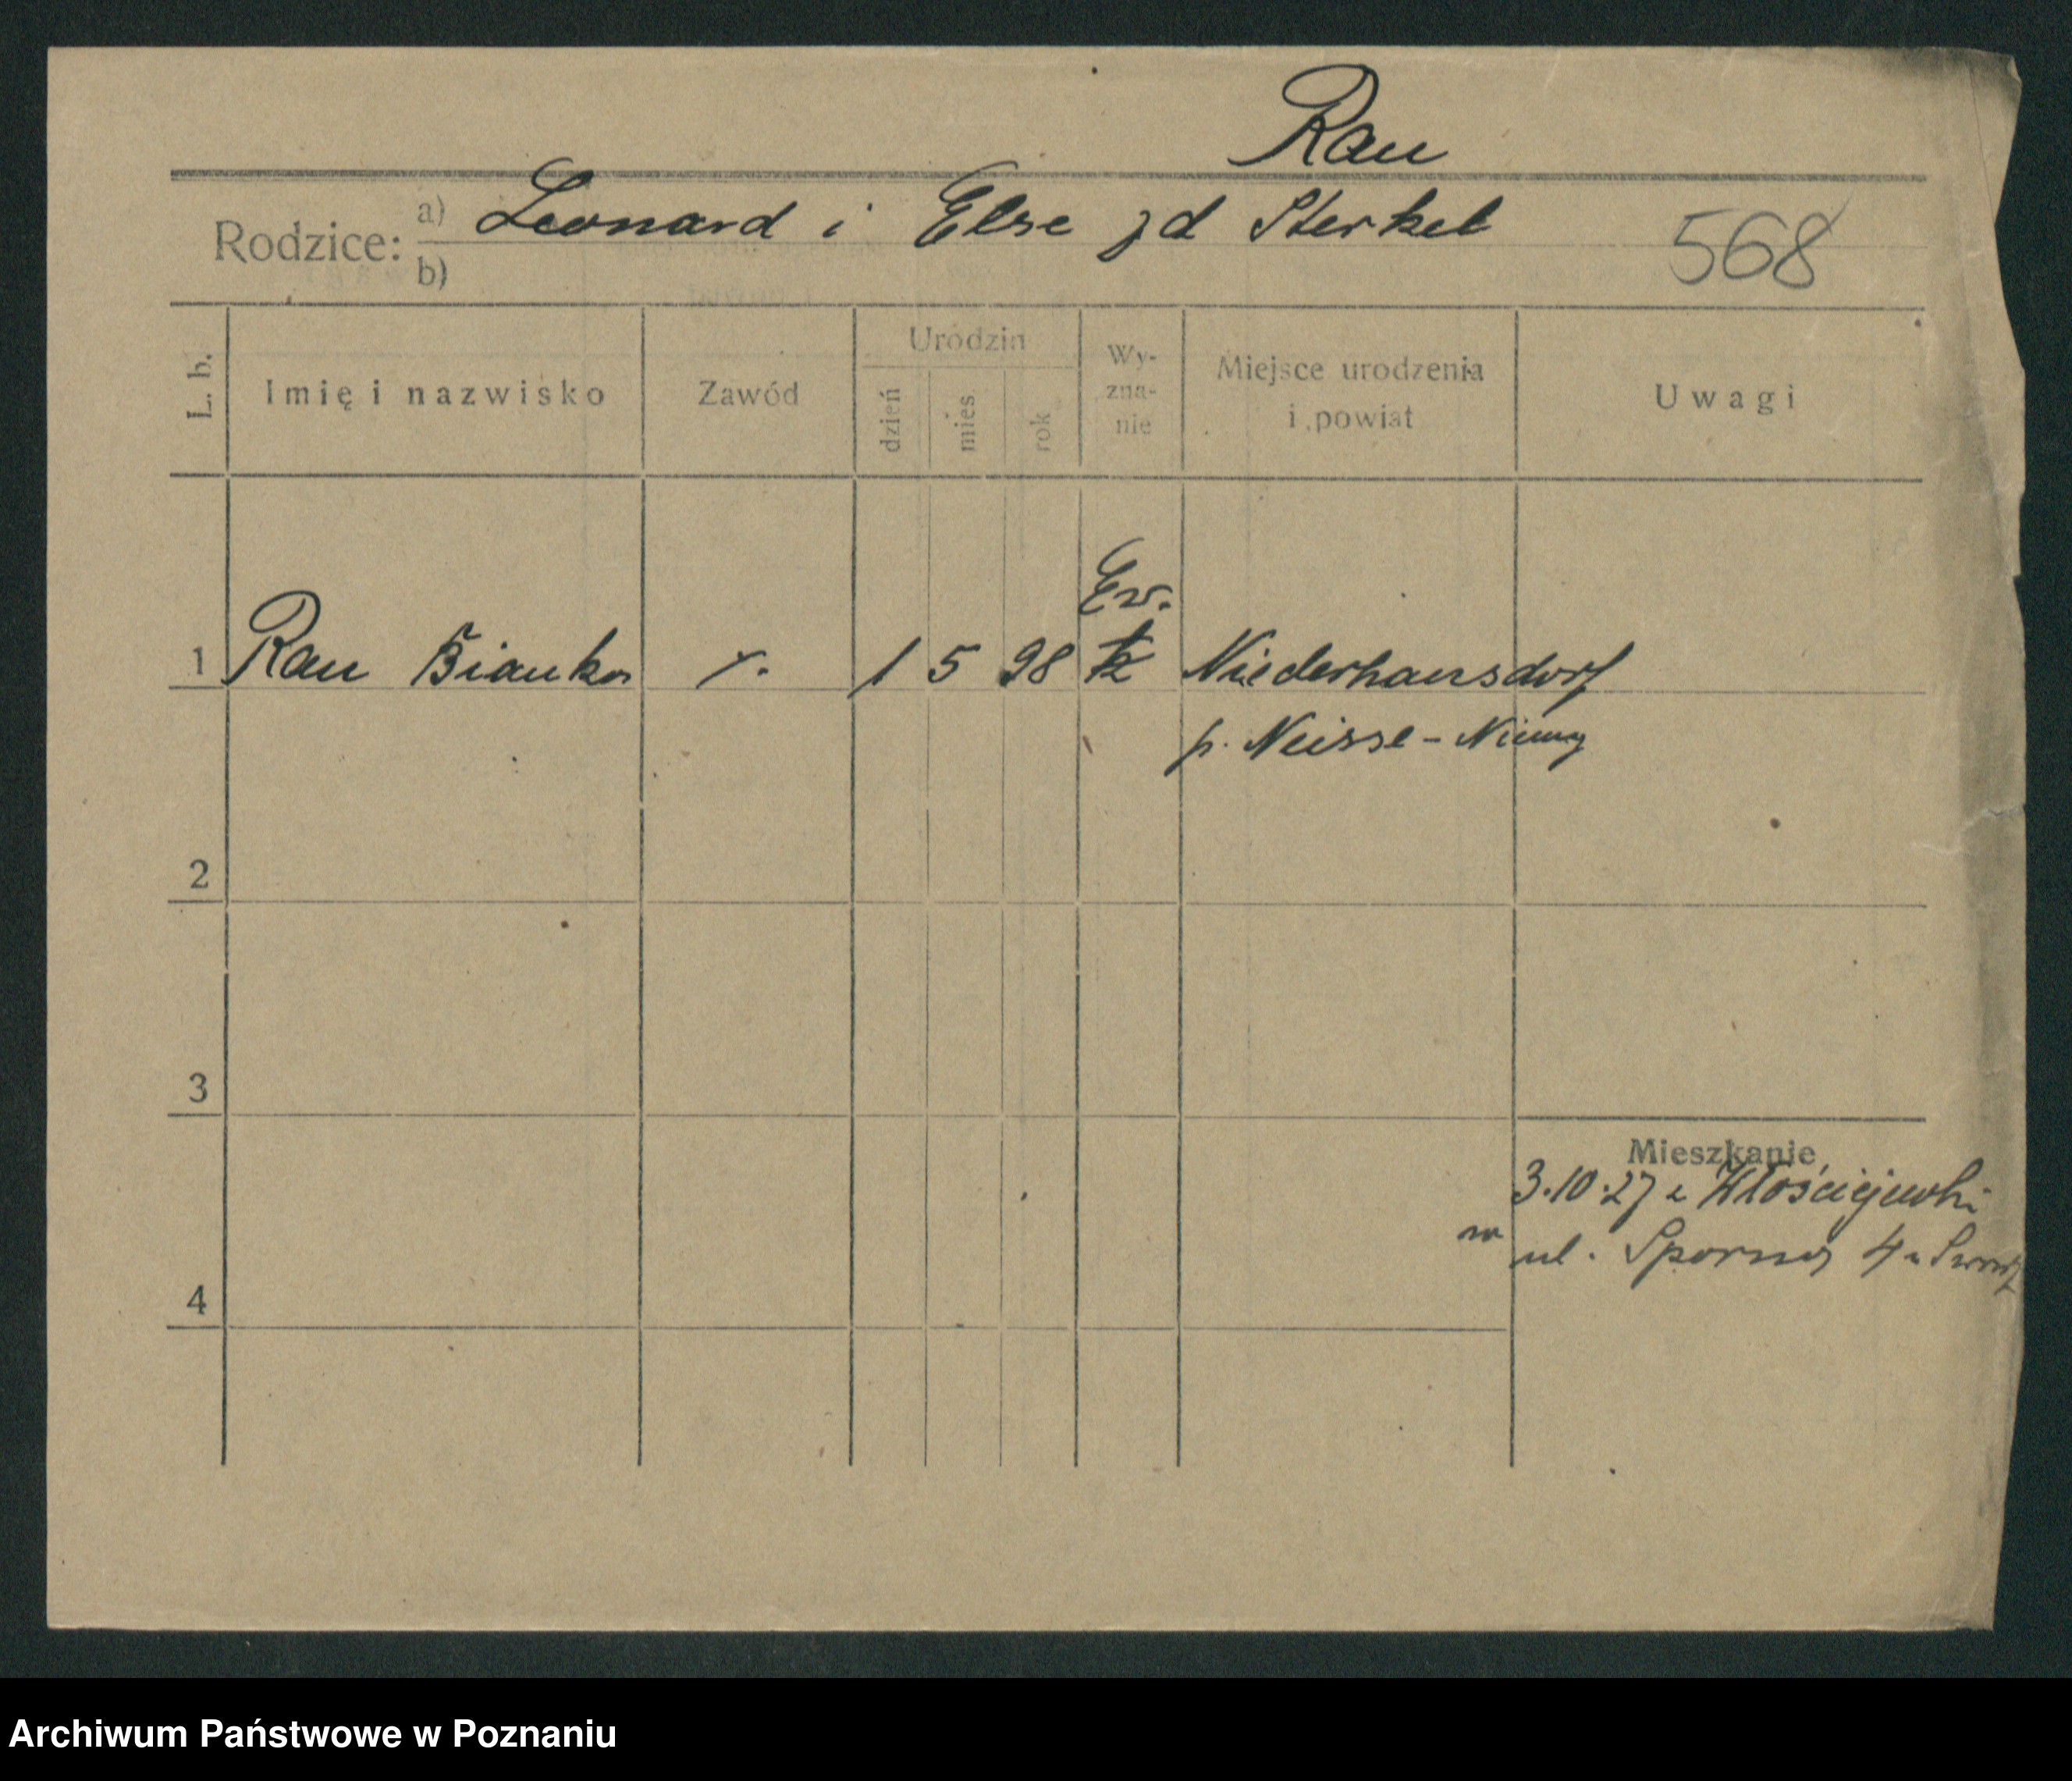 Rau
Rodzice: a) Leonard i Else zd Sterkel
b)
568
L. b. Imię i nazwisko Zawód Urodzin dzień mies rok Wy- zna- nie Miejsce urodzenia i powiat Uwagi
Ew.
1 Rau Bianka 1 5 98 k Niederhansdorf
p. Neisse - Niemcy
2
3
Mieszkanie
3.10.27 z Włościejewki
na ul. Sporna 4
4
Archiwum Państwowe w Poznaniu